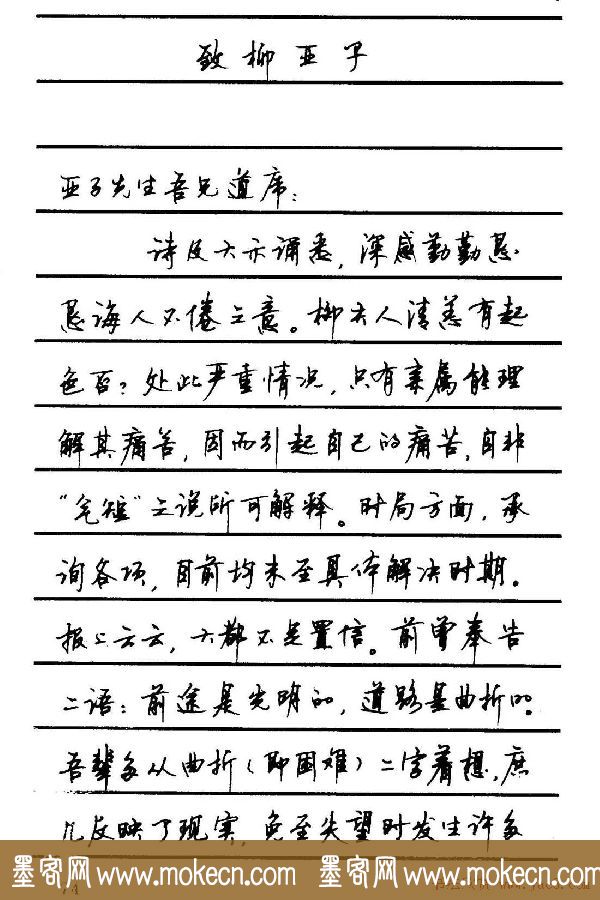 致柳亚子
亚子先生吾兄道席：
诗及大示诵悉，深感勤勤恳
恳诲人不倦之意。柳夫人清恙有起
色否？处此严重情况，只有亲属能理
解其痛苦，因而引起自己的痛苦，自非
“气短”之说所可解释。时局方面，承
询各项，目前均未至具体解决时期。
报上云云，大都不足置信。前曾奉告
二语：前途是光明的，道路是曲折的。
吾辈多从曲折（即困难）二字着想，庶
几反映了现实，免至失望时发生许多
墨客网 www.mokecn.com 墨客网 www.mokecn.com